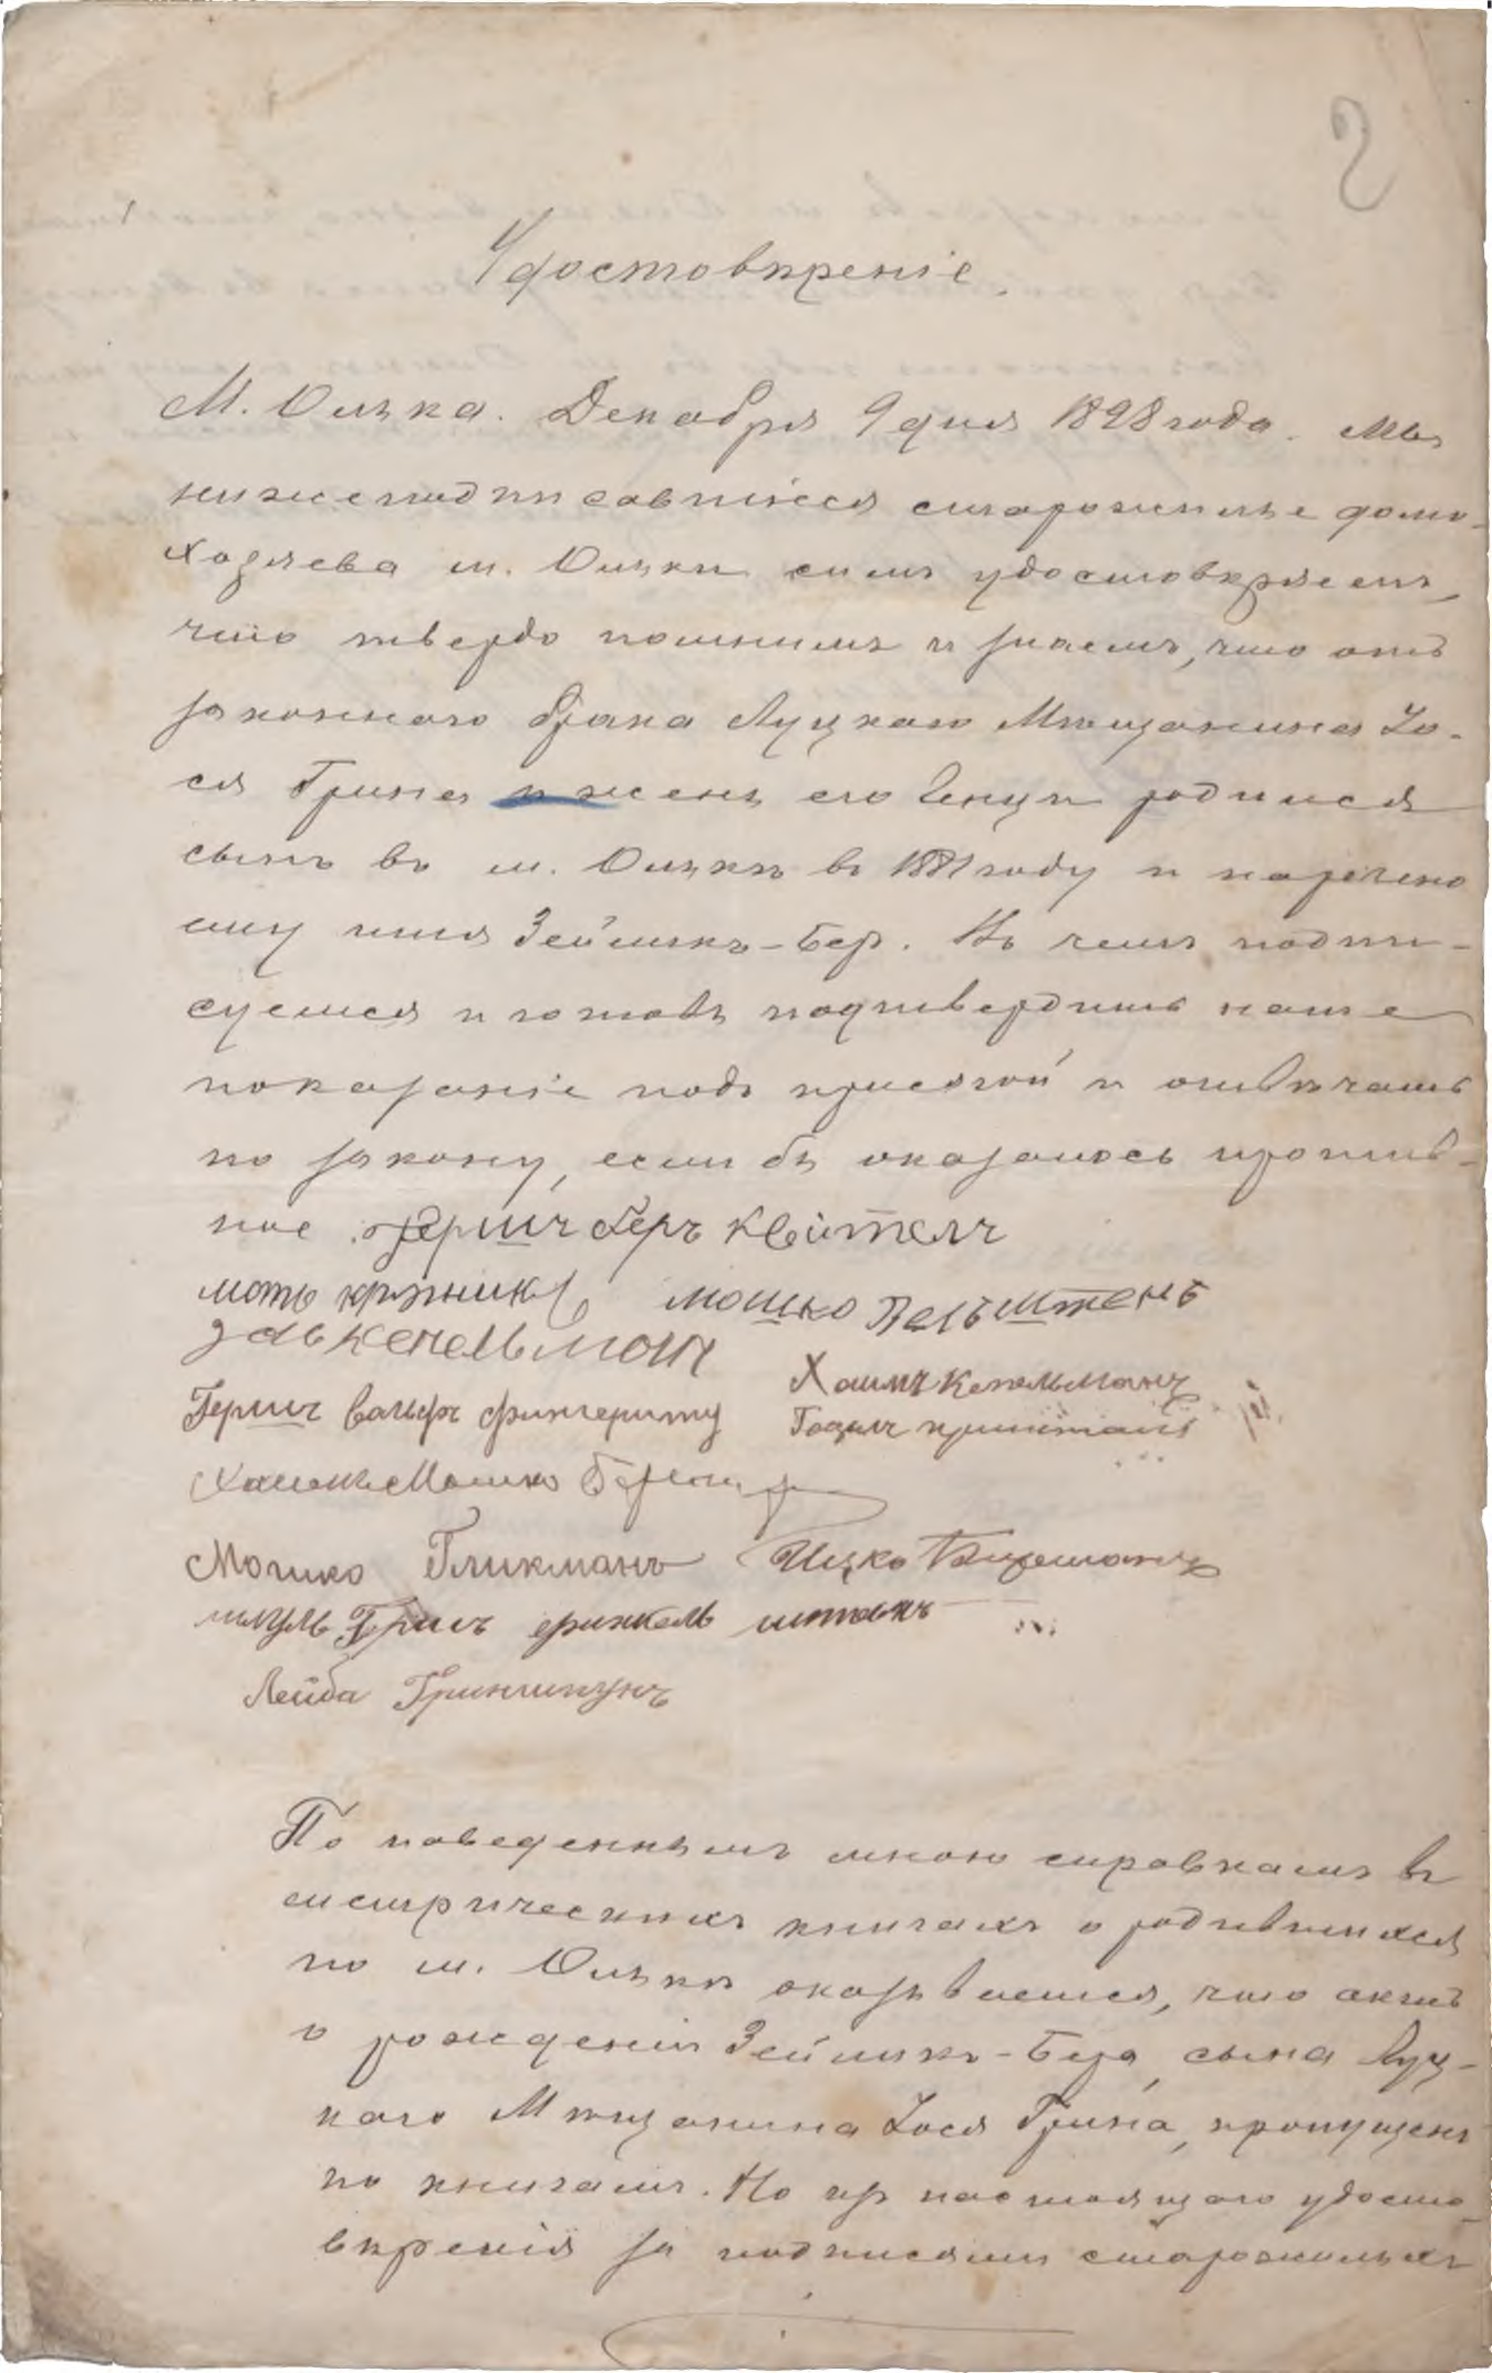 2
Удостовѣреніе.
М. Олыка. Декабря 9 дня 1898 года. Мы
нижеподписавшіеся старожилые домо-
хозяева м. Олыки симъ удостовѣряемъ,
что твердо помнимъ и знаемъ, что отъ
законнаго брака Луцкаго Мѣщанина Іо-
ся Грина и жены его Енци родился
сынъ въ м. Олыкѣ въ 1881 году и наречено
ему имя Зейликъ-Бер. Въ чемъ подпи-
суемся и готовы подтвердить наше
показаніе подъ присягой и отвѣчать
по закону, если бы оказалось против-
ное Гершъ беръ Квителъ
моть кръзникъ мошко Пельштенъ
зусь кепельман
Хаимъ Кепельманъ
Гершъ вольфъ фингеритъ
Мошко
Мошко Гликманъ Ицко
шмуль Гринъ
Лейба Гриншпунъ
По наведеннымъ мною справкамъ въ
метрическихъ книгахъ о родившихся
по м. Олыкѣ оказывается, что актъ
о рожденіи Зейликъ-Бера, сына Луц-
каго Мѣщанина Іося Грина, пропущенъ
по книгамъ. Но изъ настоящаго удосто-
вѣренія за подписями старожилыхъ